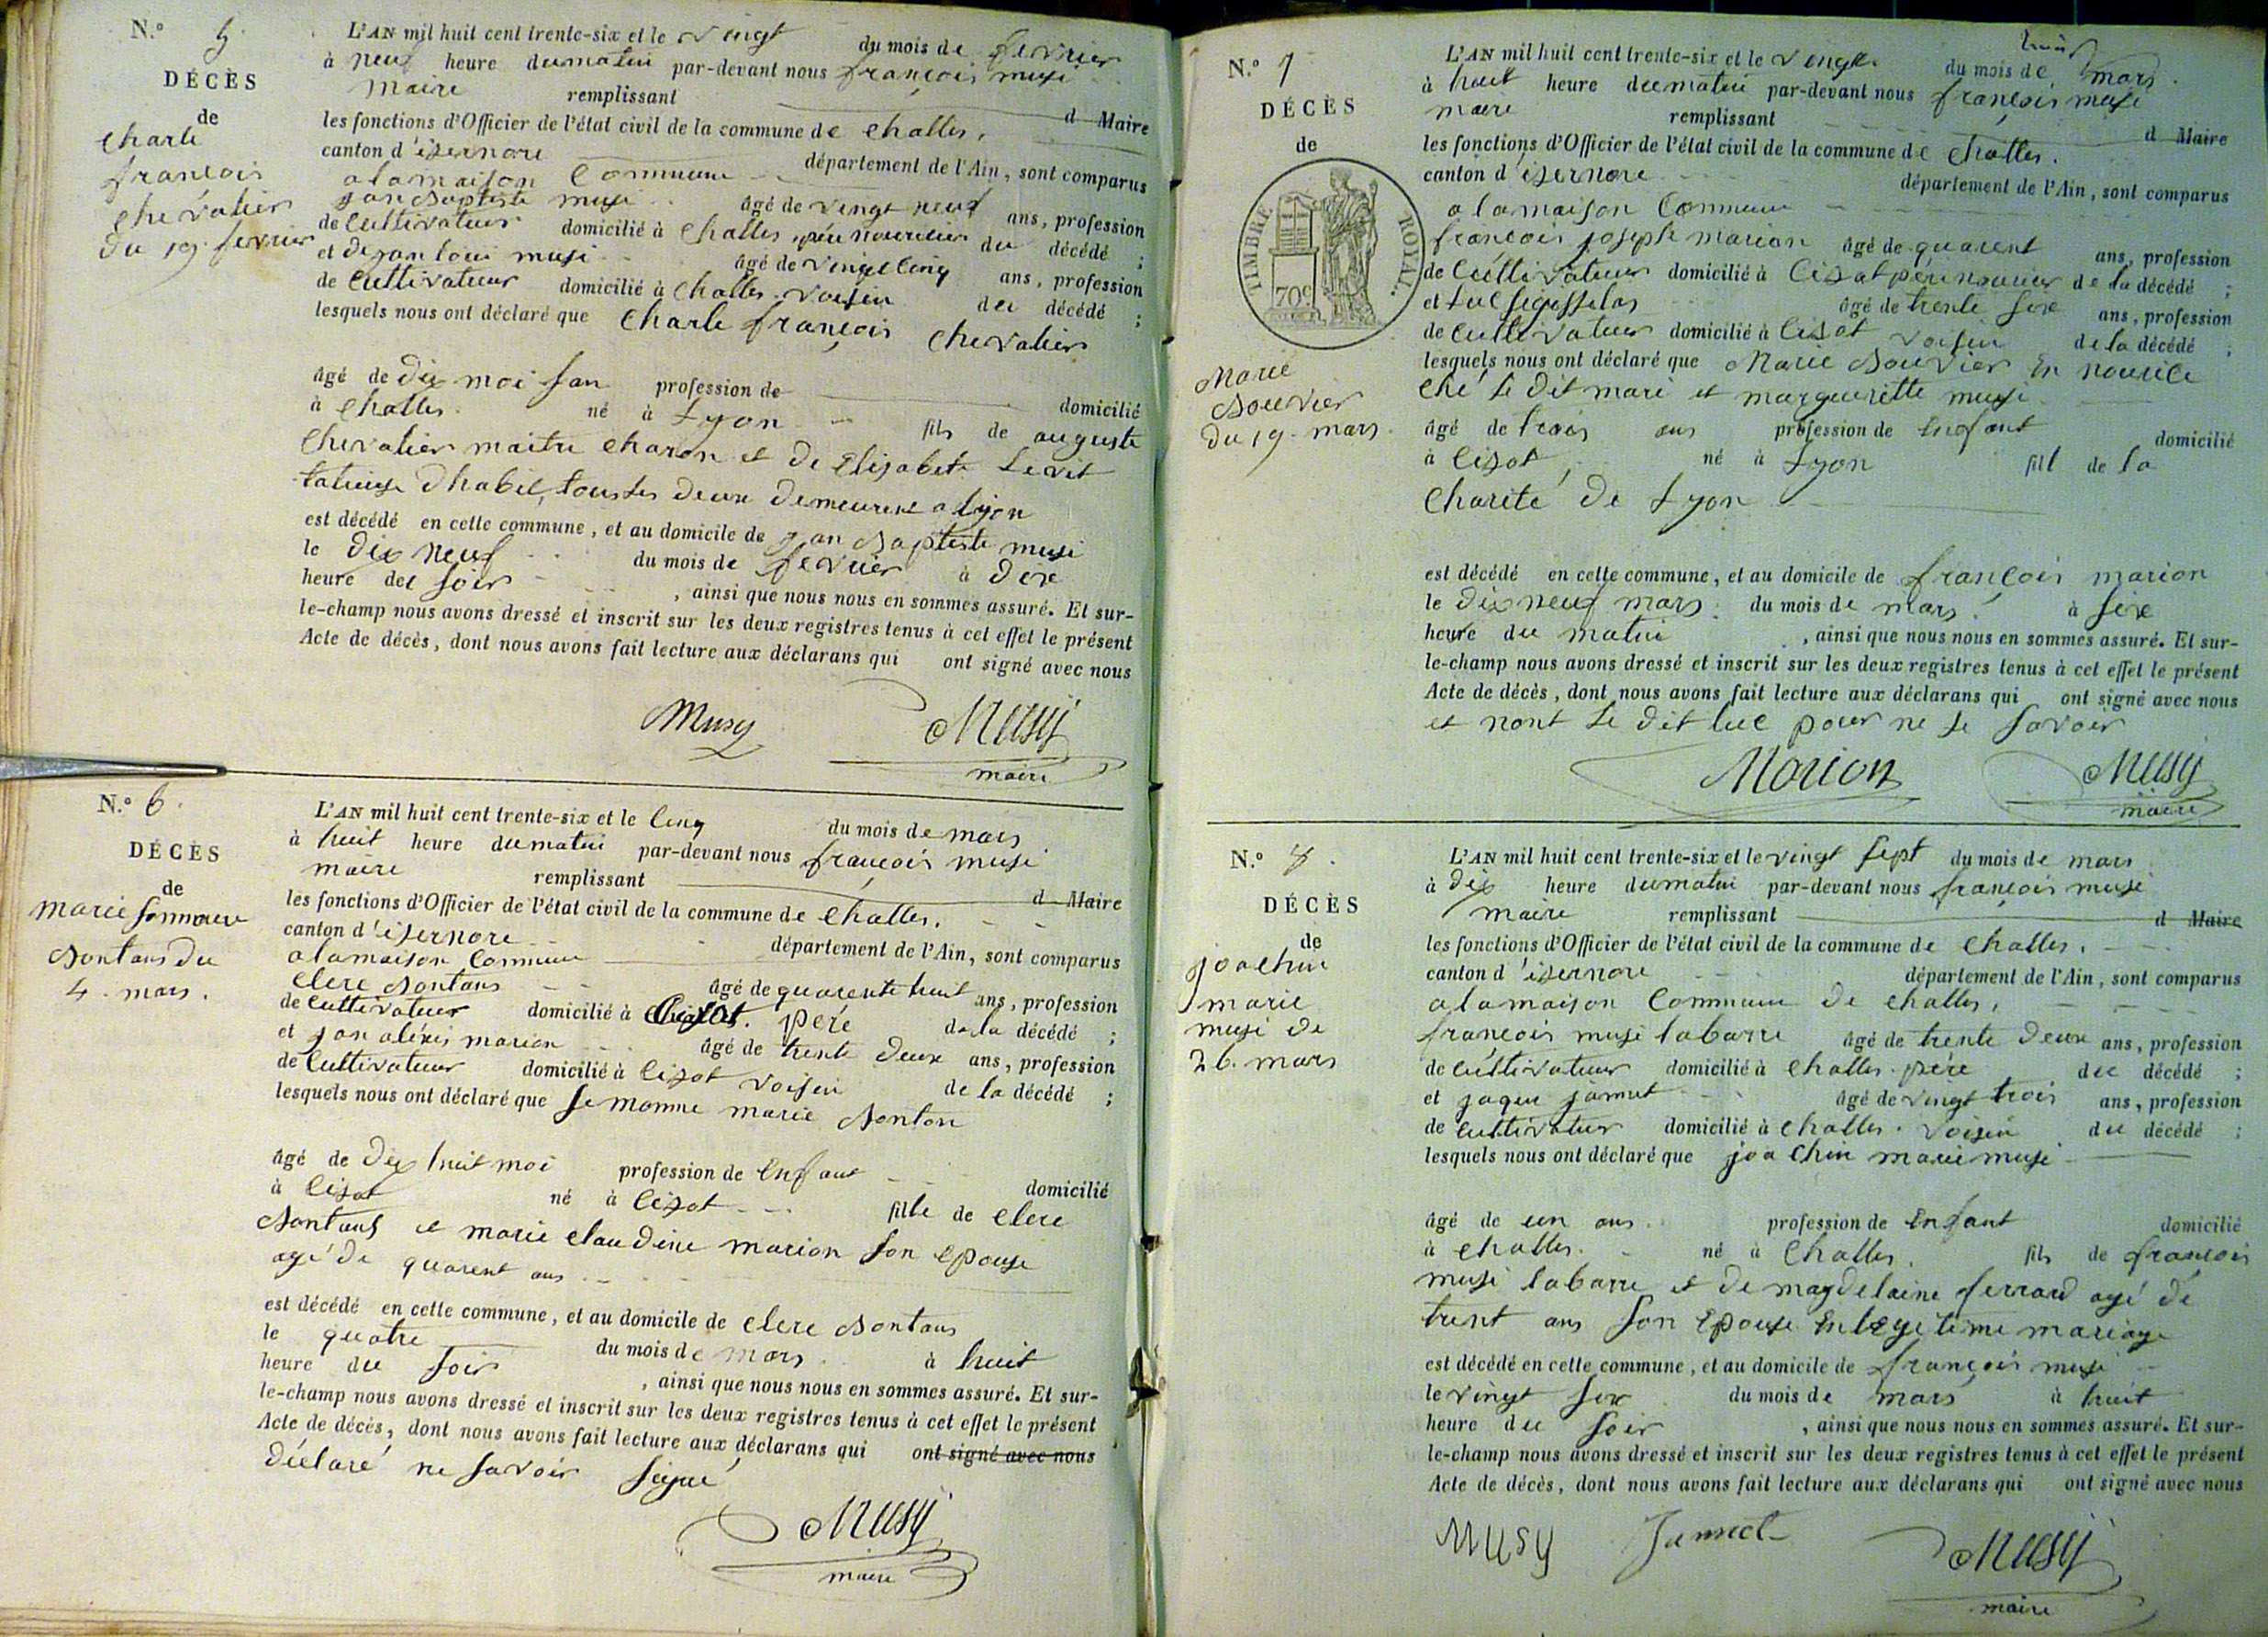 N.° 5.
DÉCÈS
de
Charle
françois
chevalier
du 19. fevrier
L'AN mil huit cent trente-six et le vingt du mois de fevrier
à neuf heure du matin par-devant nous françois musi
maire remplissant d Maire
les fonctions d'Officier de l'état civil de la commune de challes.
canton d'isernore département de l'Ain, sont comparus
a la maison Commune
jan Baptiste musi âgé de vingt neuf ans, profession
de Cultivateur domicilié à Challes, père nouricier du décédé ;
et de jan loui musi âgé de vingt cinq ans, profession
de Cultivateur domicilié à Challes. voisin du décédé ;
lesquels nous ont déclaré que Charle françois chevalier
âgé de dix moi san profession de domicilié
à Challes. né à Lyon fils de auguste
Chevalier maitre charon et de Elisabete
dhabit, tous les deux demeurent a lyon
est décédé en celle commune, et au domicile de jan Baptiste musi
le dix neuf du mois de fevrier à dixe
heure deu soir , ainsi que nous nous en sommes assuré. Et sur-
le-champ nous avons dressé et inscrit sur les deux registres tenus à cet effet le présent
Acte de décès, dont nous avons fait lecture aux déclarans qui ont signé avec nous
Musy Musy
maire
N.° 6.
DÉCÈS
de
marie
Bontans du
4. mars.
L'AN mil huit cent trente-six et le cinq du mois de mars
à huit heure du matin par-devant nous françois musi
maire remplissant d Maire
les fonctions d'Officier de l'état civil de la commune de Challes.
canton d'isernore département de l'Ain, sont comparus
a la maison Commune
clere Bontans âgé de quarente huit ans, profession
de cultivateur domicilié à père de la décédé ;
et jan aléxis marion âgé de trente deux ans, profession
de Cultivateur domicilié à cisot voisin de la décédé ;
lesquels nous ont déclaré que marie Bonton
âgé de dix huit moi profession de enfant domicilié
à cisot né à cisot fille de clere
Bontans et marie claudine marion son epouse
agé de quarent ans
est décédé en celle commune, et au domicile de clere Bontans
le quatre du mois de mars à huit
heure du soir , ainsi que nous nous en sommes assuré. Et sur-
le-champ nous avons dressé et inscrit sur les deux registres tenus à cet effet le présent
Acte de décès, dont nous avons fait lecture aux déclarans qui ont signé avec nous
déclaré ne savoir signé
Musy
maire
N.° 7
DÉCÈS
de
TIMBRE ROYAL.
70c
Marie
Bouvier
du 19. mars.
L'AN mil huit cent trente-six et le vingt du mois de mars.
à huit heure du matin par-devant nous françois musi
maire remplissant d Maire
les fonctions d'Officier de l'état civil de la commune de Challes.
canton d'isernore département de l'Ain, sont comparus
a la maison Commune
françois joseph marion âgé de quarent ans, profession
de Cultivateur domicilié à cisat père de la décédé ;
et luc âgé de trente sixe ans, profession
de Cultivateur domicilié à cisat voisin de la décédé ;
lesquels nous ont déclaré que Marie Bouvier en nourice
ché le dit mari et margueritte musi
âgé de trois ans profession de enfant domicilié
à cisot né à Lyon fill de la
charité de Lyon
est décédé en celle commune, et au domicile de françois marion
le dix neuf mars du mois de mars à sixe
heure du matin , ainsi que nous nous en sommes assuré. Et sur-
le-champ nous avons dressé et inscrit sur les deux registres tenus à cet effet le présent
Acte de décès, dont nous avons fait lecture aux déclarans qui ont signé avec nous
et nont le dit luc pour ne le savoir
Marion Musy
maire
N.° 8.
DÉCÈS
de
joachin
marie
musi de
26. mars
L'AN mil huit cent trente-six et le vingt sept du mois de mars
à dix heure du matin par-devant nous françois musi
maire remplissant d Maire
les fonctions d'Officier de l'état civil de la commune de Challes.
canton d'isernore département de l'Ain, sont comparus
a la maison Commune de challes,
francois musi labarre âgé de trente deux ans, profession
de cultivateur domicilié à Challes. père du décédé ;
et jaque jamet âgé de vingt trois ans, profession
de cultivateur domicilié à Challes. voisin du décédé ;
lesquels nous ont déclaré que joachin marie musi
âgé de un ans. profession de enfant domicilié
à Challes. né à Challes. fils de françois
musi labarre et de magdelaine ferrand agé de
trent ans son epouse en legetime mariage
est décédé en celle commune, et au domicile de françois musi
le vingt six du mois de mars à huit
heure du soir , ainsi que nous nous en sommes assuré. Et sur-
le-champ nous avons dressé et inscrit sur les deux registres tenus à cet effet le présent
Acte de décès, dont nous avons fait lecture aux déclarans qui ont signé avec nous
MUSY Jamet Musy
maire